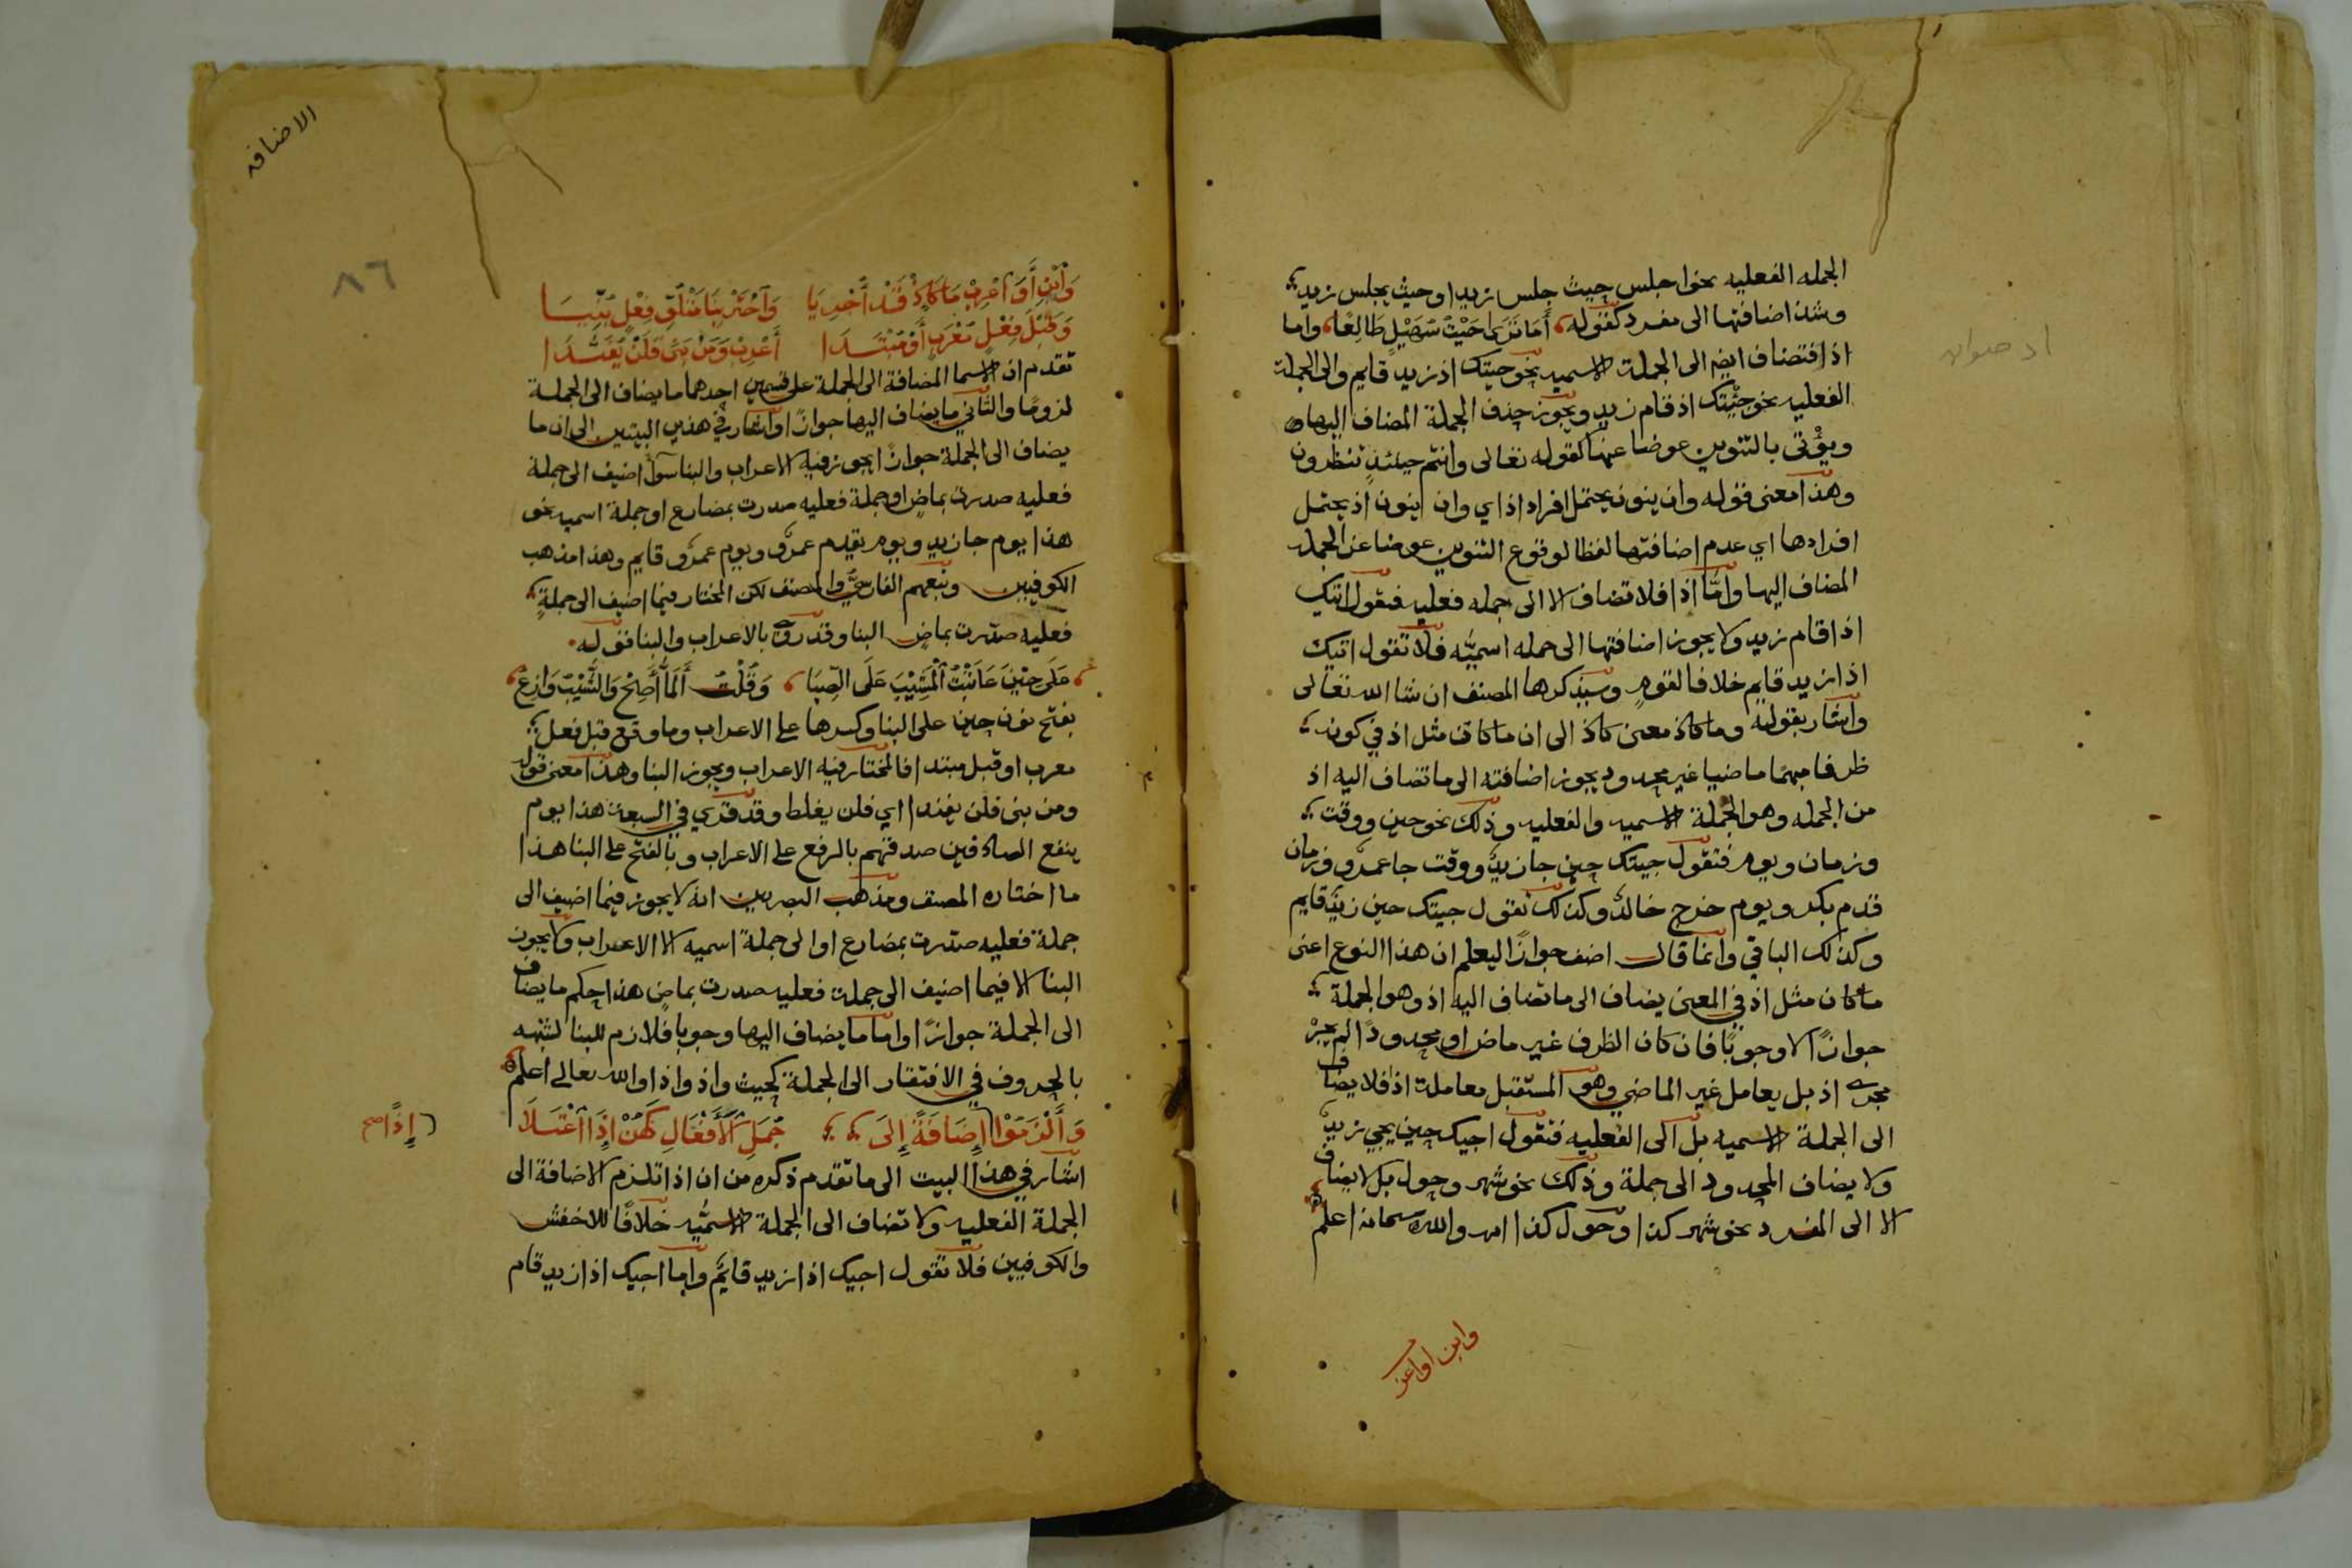 الجمله الفعليه نحو اجلس حيث جلس زيد او حيث يجلس زيد
وشذ اضافتها الى مفرد كقوله أَمَا تَرَى حَيْثُ سُهَيْلٍ طَالِعًا واما
اذ فتضاف ايضا الى الجملة الاسميه نحو جيتك اذ زيد قايم والى الجملة
الفعليه نحو جيتك اذ قام زيد ويجوز حذف الجملة المضاف اليها
ويؤتى بالتنوين عوضا عنها كقوله تعالى وانتم حينئذٍ تنظرون
وهذا معنى قوله وان ينون يحتمل افراد اذ اي وان ينون اذ يحتمل
افرادها اي عدم اضافتها لفظا لوقوع التنوين عوضا عن الجملة
المضاف اليها وامّا اذا فلا تضاف الا الى جمله فعليه فتقول اتيك
اذا قام زيد ولا يجوز اضافتها الى جمله اسميّه فلا تقول اتيك
اذا زيد قايم خلافا لقومٍ وسيذكرها المصنف ان شا الله تعالى
واشار بقوله وما كاذ معنى كاذ الى ان ما كان مثل اذ في كونه
ظرفا مبهمًا ماضيا غير محدود يجوز اضافته الى ما تضاف اليه اذ
من الجمله وهو الجملة الاسميه والفعليه وذلك نحو حين ووقت
وزمان ويوم فتقول جيتك حين جا زيدٌ ووقت جا عمرٌو وزمان
قدم بكر ويوم خرج خالدٌ وكذلك تقول جيتك حين زيدٌ قايم
وكذلك الباقي وانما قال اضف جوازًا ليعلم ان هذا النوع اعنى
ما كان مثل اذ في المعنى يضاف الى ما تضاف اليه اذ وهو الجملة
جوازًا لا وجوبًا فان كان الظرف غير ماض او محدودًا لم يجرْ
مجرى اذ بل يعامل غير الماضي وهو المستقبل معاملة اذا فلا يضاف
الى الجملة الاسميه بل الى الفعليه فتقول اجيك حين يجي زيد
ولا يضاف المحدود الى جملة وذلك نحو شهر وحول بل لا يضاف
الا الى المفرد نحو شهر كذا وحول كذا والله سبحانه اعلم
وابن او اعر
الاضافه
٨٦
وَٱبْنِ أَوَ ٱعْرِبْ مَا كَإِذْ قَدْ أُجْرِيَا وَٱخْتَرْ بِنَا مَتْلُوِّ فِعْلٍ بُنِيَا
وَقَبْلَ فِعْلٍ مُعْرَبٍ أَوْ مُبْتَدَا أَعْرِبْ وَمَنْ بَنَى فَلَنْ يُفَنَّدَا
تقدم ان الاسما المضافة الى الجملة على قسمين احدهما ما يضاف الى الجملة
لزومًا والثاني ما يضاف اليها جوازًا واشار في هذين البيتين الى ان ما
يضاف الى الجملة جوازًا يجوز فيه الاعراب والبنا سوآ اضيف الى جملة
فعليه صدرت بماضٍ او جملة فعليه صدرت بمضارع او جملة اسميه نحو
هذا يوم جا زيد ويوم يقدم عمرٌو ويوم عمرٌو قايم وهذا مذهب
الكوفيين وتبعهم الفارسيّ والمصنف لكن المختار فيما اضيف الى جملةٍ
فعليه صدّرت بماضٍ البنا وقد روي بالاعراب والبنا قوله
عَلَى حِيْنَ عَاتَبْتُ ٱلْمَشِيْبَ عَلَى الصِّبَا وَقُلْتُ أَلَمَّا أَصِحْ وَالشَّيْبُ وَازِعُ
بفتح نون حين على البنا وكسرها على الاعراب وما وقع قبل فعل
معرب او قبل مبتدا فالمختار فيه الاعراب ويجوز البنا وهذا معنى قوله
ومن بنى فلن يفندا اي فلن يغلط وقد قري في السبعة هذا يوم
ينفع الصادقين صدقهم بالرفع على الاعراب وبالفتح على البنا هذا
ما اختاره المصنف ومذهب البصريين انه لا يجوز فيما اضيف الى
جملة فعليه صدّرت بمضارع او الى جملة اسميه الا الاعراب ولا يجوز
البنا الا فيما اضيف الى جملة فعليه صدرت بماضٍ هذا حكم ما يضاف
الى الجملة جوازًا واما ما يضاف اليها وجوبا فلازم للبنا لشبهه
بالحروف في الافتقار الى الجملة كحيث واذ واذا والله تعالى اعلم
وَأَلْزَمُوْا إِضَافَةً إِلَى جُمَلِ ٱلْأَفْعَالِ كَهُنْ إِذَا ٱعْتَلَا
إِذًا صح
اشار في هذا البيت الى ما تقدم ذكره من ان اذا تلزم الاضافة الى
الجملة الفعليه ولا تضاف الى الجملة الاسميّه خلافًا للاخفش
والكوفيين فلا تقول اجيك اذا زيد قايمٌ واما اجيك اذا زيد قام